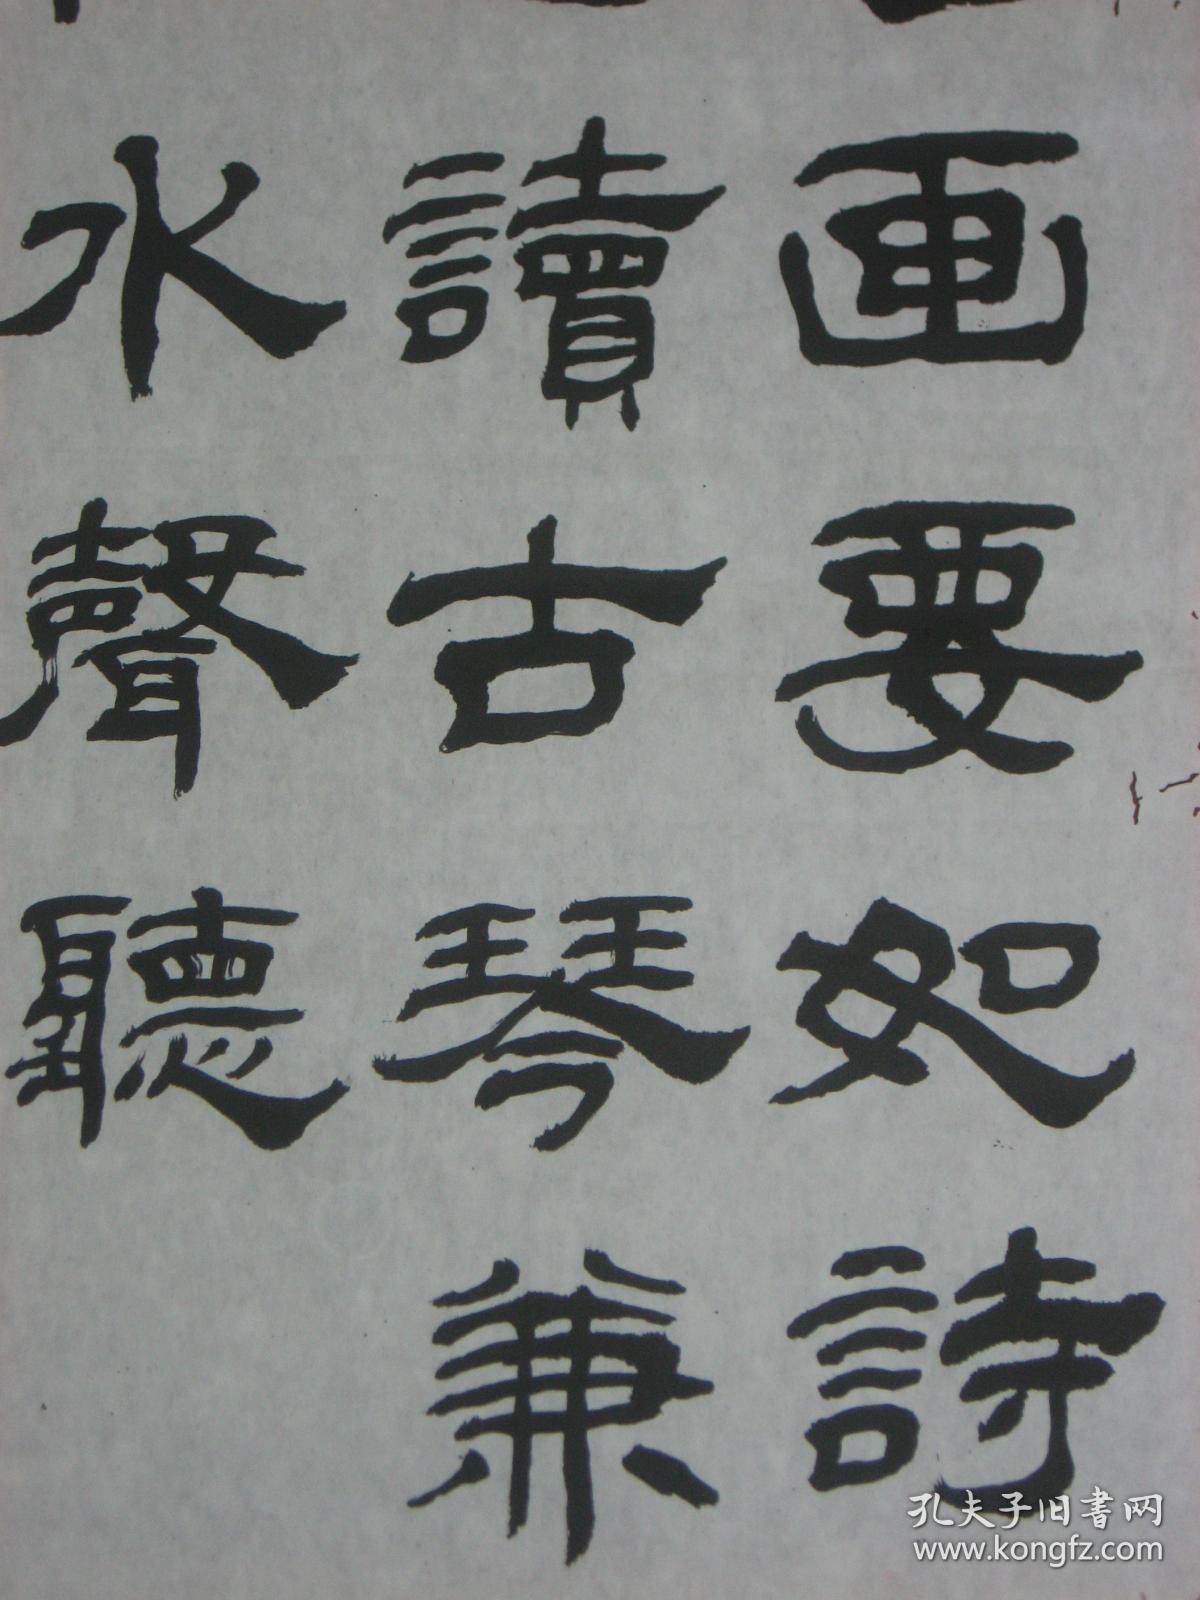 画要如詩
讀古琴兼
水聲聽
孔夫子旧書网
www.kongfz.com